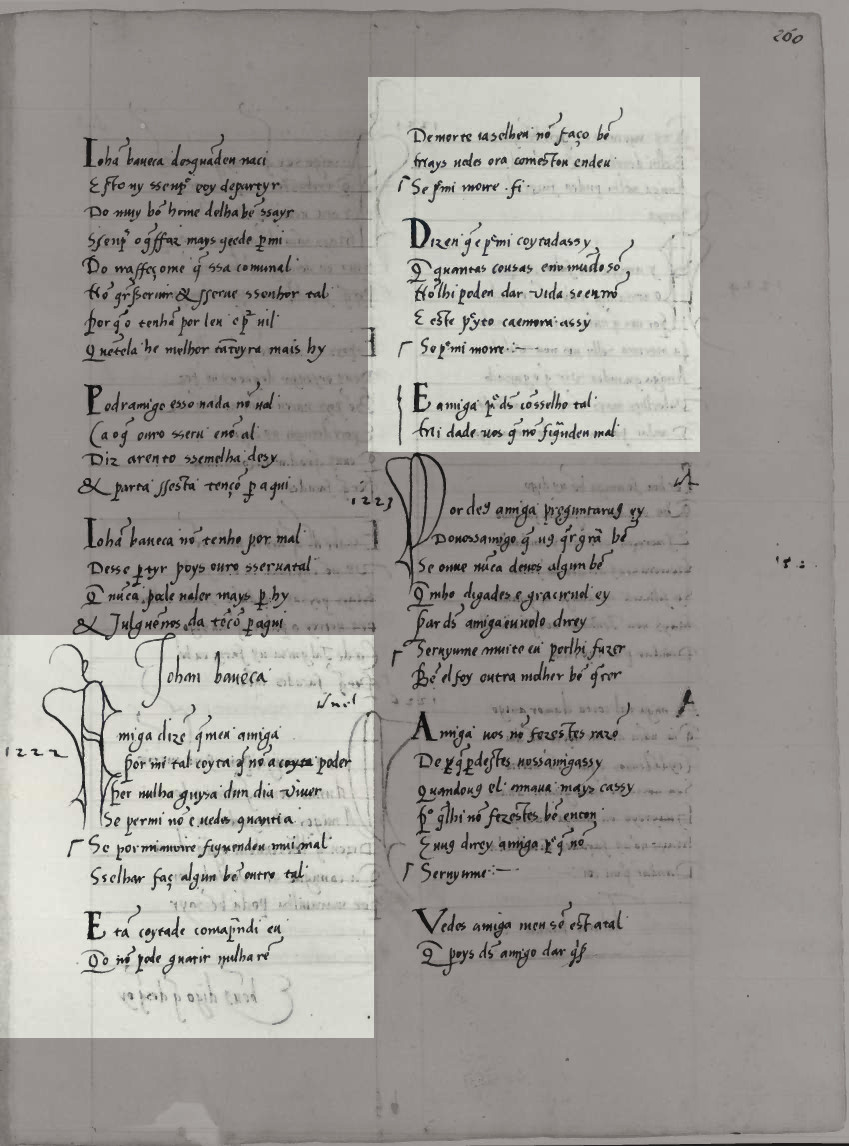 260
Iohã baueca desguaden naci
Esto uy ssenpʳ ooy departyr
Do muy bõ home delhabẽ ssayr
Ssenpʳ o q̃ffaz mays ýeede pmi
Do uassẽ come q̃ ssa comunal
Nõ q̃r sseruir & sserue ssenhor tal
Por q̃o tenhã por leu e pʳ uil
Quetela he melhor tãteyra mais hy
Podramigo esso nada nõ ual
Ca o q̃ ouro sseru enõ al
Diz arento ssemelha desy
& parta ssesta tençõ p aqui
Iohã baueca nõ tenho por mal
Desse ptyr poys ouro sseruatal
Q̃ nũcã pode ualer mays p hy
& Julguẽnos da tẽcõ p aqui
Johan baueca
1222
Amiga dizẽ q̃meu amiga
Por mi tal coyta q̃ nõ a coyta poder
Per nulha guysa dun dia viuer
Se permi nõ e uedes quantia
Se por mi moire fiquendeu mui mal
Sselhar faç algun bẽ outro tal
E tã coytade comapndi eu
Qo nõ pode guarir nulha rẽ
De morte iaselheu nõ faço bẽ
Mays uedes ora comestou endeu
Se pʳmi moire . fi
Dizen q̃ e pʳmi coytadassy
Q̃ quantas cousas eno mũdo sõ
Nõ lhi poden dar vida seeu nõ
E este pʳyto caemora assy
Se pʳmi moire :—
E amiga pʳ ds̃ cõsselho tal
Mi dade uos q̃ nõ fiq̃nden mal
1223
Por ds̃ amiga preguntaruꝯ ey
Do uossamigo q̃ uꝯ q̃r grã bẽ
Se ouue nũca deuos algun bẽ
Q̃ mho digades e gracirnol ey
Par ds̃ amiga eu uolo direy
Seruyume muito eu porlhi fazer
Bẽ el foy outra molher bẽ q̃rer
Amiga uos nõ fezestes razõ
De pq̃ pdestes uossamigassy
Quandouꝯ el amaua mays cassy
Pʳ q̃lhi nõ fezestes bẽ enton
Euuꝯ direy amiga pʳ q̃ nõ
Seruyume :—
Vedes amiga meu sẽ est atal
Q̃ poys ds̃ amigo dar q̃ʳ